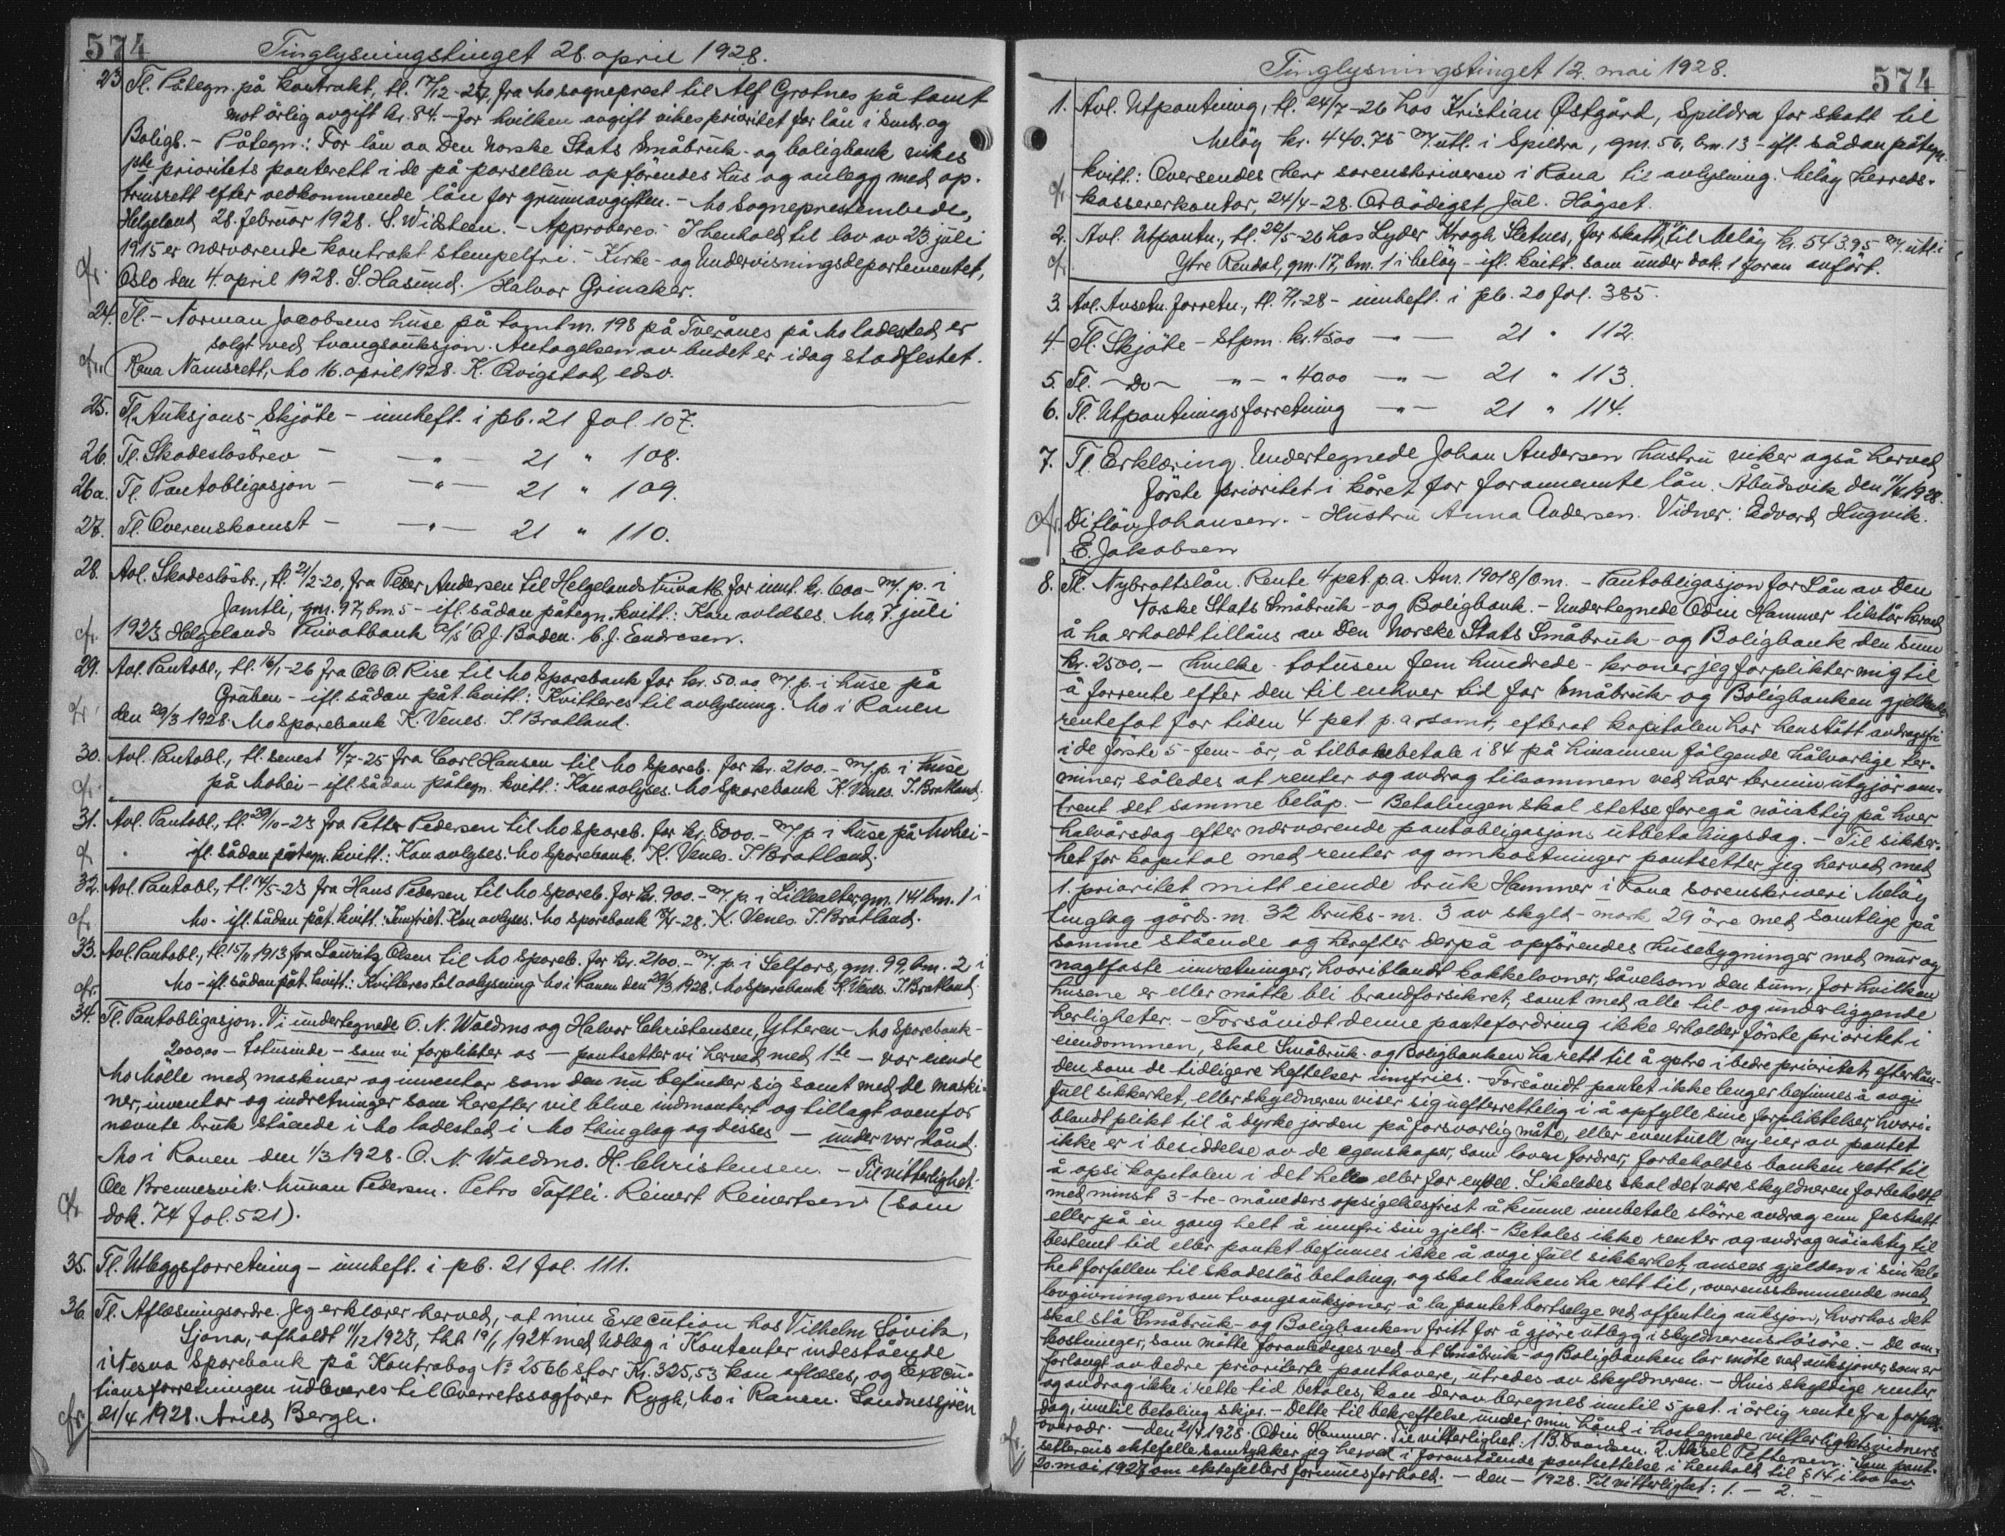 574
Tinglysningstinget 28. april 1928.
23. Tl. Påtegn. på kontrakt, tl. 17/12-27, fra Mo sogneprest til Alf Grotnes på tomt
mot årlig avgift kr. 84.- for hvilken avgift vikes prioritet for lån i Småbr. og
Boligb. - Påtegn.: For lån av Den Norske Stats Småbruk- og boligbank vikes
prioritets panterett i de på parsellen opførendes hus og anlegg med op-
trinsrett efter vedkommende lån for grunnavgiften. - Mo sogneprestembede,
Helgeland 28. februar 1928. S. Widsteen. - Approberes. I henhold til lov av 23 juli
1915 er nærværende kontrakt stempelfri. - Kirke- og Undervisningsdepartementet,
Oslo den 4. april 1928. S. Hasund. / Halvor Grinaker.
24. Tl. - Norman Jacobsens huse på tomt nr. 198 på Tverånes på Mo ladested er
solgt ved tvangsauksjon. Antagelsen av budet er idag stadfestet.
Rana Namsrett, Mo 16. april 1928. K. Qvigstad, edsv.
25. Tl. Auksjons-Skjöte - innheft. i pb. 21 fol. 107.
26. Tl. Skadeslösbrev - — " — 21 " 108.
26a. Tl. Pantobligasjon - — " — 21 " 109.
27. Tl. Overenskomst - — " — 21 " 110.
28. Avl. Skadeslösbr., tl. 21/2-20, fra Peder Andersen til Helgelands Privatb. for innt. kr. 600 - m/ p. i
Jamtli, gnr. 97, bnr. 5 - ifl. sådan påtegn. kvitt: Kan avlæses. Mo, 7 juli
1923 Helgelands Privatbank A/S O. J. Baden. C. J. Endresen.
29. Avl. Pantobl., tl. 16/1-26 fra Ole O. Rise til Mo Sparebank for kr. 50.00 m/ p. i huse på
Gruben - ifl. sådan påt. kvitt: Kvitteres til avlysning. Mo i Ranen
den 29/3 1928. Mo Sparebank K. Venes. I. Bratland.
30. Avl. Pantobl., tl. senest 4/7-25 fra Carl Hansen til Mo Spareb. for kr. 2100.- m/ p. i huse
på Mohei - ifl. sådan påtegn. kvitt: Kan avlyses. Mo Sparebank K. Venes. I. Bratland.
31. Avl. Pantobl., tl. 29/10-23 fra Petter Pedersen til Mo Spareb. for kr. 8000.- m/ p. i huse på Mohei -
ifl. sådan påtegn. kvitt: Kan avlyses. Mo Sparebank. K. Venes. I. Bratland.
32. Avl. Pantobl., tl. 14/5-23 fra Hans Pedersen til Mo Spareb. for kr. 900.- m/ p. i Lillealter gnr. 14 bnr. 1 i
Mo - ifl. sådan påt. kvitt: Innfriet. Kan avlyses. Mo Sparebank -28. K. Venes I. Bratland.
33. Avl. Pantobl., tl. 15/11 1913 fra Lauritz Olsen til Mo Spareb. for kr. 2100.- m/ p. i Selfors, gnr. 99, bnr. 2 i
Mo - ifl. sådan påt. kvitt: Kvitteres til avlysning Mo i Ranen den 29/3 1928. Mo Sparebank K. Venes. I. Bratland
34. Tl. Pantobligasjon. Vi undertegnede O. N. Waldmo og Halvor Christensen, Ytteren - Mo Sparebank -
2000.00 - totusinde - som vi forplikter os - pantsetter vi herved med 1ste - vor eiende
Mo Mölle med maskiner og inventar som den nu befinder sig samt med de maski-
ner, inventar og indretninger som herefter vil blive indmontert og tillagt ovenfor
nævnte bruk stående i Mo ladested i Mo thinglag og desses - under vor hånd.
Mo i Ranen den 1/3 1928. O. N. Waldmo. H. Christensen. - Til vitterlighet:
Ole Brennesvik. Munan Pedersen. Petro Toftli. Reinert Reinertsen (som
dok. 74 fol. 521).
35. Tl. Utleggsforretning - innheft. i pb. 21 fol. 111.
36. Tl. Aflæsningsordre. Jeg erklærer herved, at min Execution hos Vilhelm Såvik,
Sjona, afholdt 11/12 1923, thl. 19/1 1924 med Udlæg i Kontanter indestående
i Nesna Sparebank på Kontrabog No 2566 stor Kr. 325,53 kan aflæses, og Execu-
tionsforretningen udleveres til Overretssagfører Rygh, Mo i Ranen. Sandnessjöen
21/4 1928. Arild Bergh.
Tinglysningstinget 12. mai 1928.
574
1. Avl. Utpantning, tl. 24/7-26 hos Kristian Østgård, Spildra for skatt til
Meløy kr. 440.75 m/ utl. i Spildra, gnr. 56, bnr. 13 - ifl. sådan påtegn.
kvitt: Oversendes herr sorenskriveren i Rana til avlysning. Meløy herreds-
kassererkontor, 24/4-28. Ærbødigst Jul. Hågset.
2. Avl. Utpantn., tl. 22/5-26 hos Lyder Krogh Sletnes, for skatt til Meløy kr. 543.95 m/ utl. i
Ytre Rendal, gnr. 17, bnr. 1 i Meløy - ifl. kvitt. som under dok. 1 foran anført.
3. Avl. Avsetn. forretn., tl. -28 - innheft. i pb. 20 fol. 385.
4. Tl. Skjöte - Stpm. kr. 4500 — " — 21 " 112.
5. Tl. - Do - — " — " 4000 — " — 21 " 113.
6. Tl. Utpantningsforretning — " — 21 " 114.
7. Tl. Erklæring. Undertegnede Johan Andersen hustru viker også herved
förste prioritet i kåret for forannevnte lån. Åbudsvik den 1928.
Ditlöv Johansen. - Hustru Anna Andersen. Vidner: Edvard Hugvik.
E. Jakobsen
8. Tl. Nybrottslån. Rente 4 pct. p.a. Anr. 19018/Om. - Pantobligasjon for Lån av Den
Norske Stats Småbruk- og Boligbank. - Undertegnede Odin Hammer tilstår herved
å ha erholdt tillåns av Den Norske Stats Småbruk- og Boligbank den sum
kr. 2500,- hvilke - totusen fem hundrede - kroner jeg forplikter mig til
å forrente efter den til enhver tid for Småbruk- og Boligbanken gjeldende
rentefot for tiden 4 pct. p. a. samt, efterat kapitalen har henstått avdragsfri
i de förste 5 - fem - år, å tilbakebetale i 84 på hinannen fölgende halvårlige ter-
miner, således at renter og avdrag tilsammen ved hver termin utgjör om-
trent det samme belöp. - Betalingen skal stetse foregå nöiaktig på hver
halvårsdag efter nærværende pantobligasjons utbetalingsdag. - Til sikker-
het for kapital med renter og omkostninger pantsetter jeg herved med
1. prioritet mitt eiende bruk Hammer i Rana sorenskriveri Meløy
tinglag gårds-nr. 32 bruks-nr. 3 av skyld-mark 29 öre med samtlige på
samme stående og herefter derpå opförendes husebygninger med mur og
naglfaste innretninger, hvoriblandt kakkelovner, såvelsom den sum, for hvilken
husene er eller måtte bli brandforsikret, samt med alle til- og underliggende
herligheter. - Forsåvidt denne pantefordring ikke erholder förste prioritet i
eiendommen, skal Småbruk- og Boligbanken ha rett til å gå i bedre prioritet efterhån-
den som de tidligere heftelser innfries. - Forsåvidt pantet ikke lenger befinnes å avgi
full sikkerhet, eller skyldneren viser sig uefterrettelig i å opfylle sine forpliktelser hvori-
blandt plikt til å dyrke jorden på forsvarlig måte, eller eventuell ny eier av pantet
ikke er i besiddelse av de egenskaper, som loven fordrer, forbeholdes banken rett til
å opsi kapitalen i det hele eller for en del. Likeledes skal det være skyldneren forbeholdt
med minst 3 - tre - måneders opsigelsesfrist å kunne innbetale större avdrag enn fastsatt
eller på en gang helt å innfri sin gjeld. - Betales ikke renter og avdrag nöiaktig til
bestemt tid eller pantet befinnes ikke å avgi full sikkerhet, ansees gjelden i sin hel-
het forfallen til skadeslös betaling, og skal banken ha rett til, overensstemmende med
lovgivningen om tvangsauksjoner, å la pantet bortselge ved offentlig auksjon, hvorhos det
skal stå Småbruk- og Boligbanken fritt for å gjöre utlegg i skyldnerens lösöre. - De om-
kostninger, som måtte foranlediges ved at Småbruk- og Boligbanken lar möte ved auksjoner, som er
forlangt av bedre prioriterte panthavere, utredes av skyldneren. - Hvis skyldige renter
og avdrag ikke i rette tid betales, kan derav beregnes inntil 5 pct. i årlig rente fra forfalls-
dag, inntil betaling skjer. - Dette til bekreftelse under min hånd i hostegnede vitterlighetsvidners
overvær. - den 21/4 1928. Odin Hammer. Til vitterlighet: 1. B. Davidsen. 2. Aksel Pettersen. - Som pant-
setterens ektefelle samtykker jeg herved i foranstående pantsettelse i henhold til § 14 i lov av
20. mai 1927 om ektefellers formuesforhold. - den - 1928. Til vitterlighet: 1. - 2. -